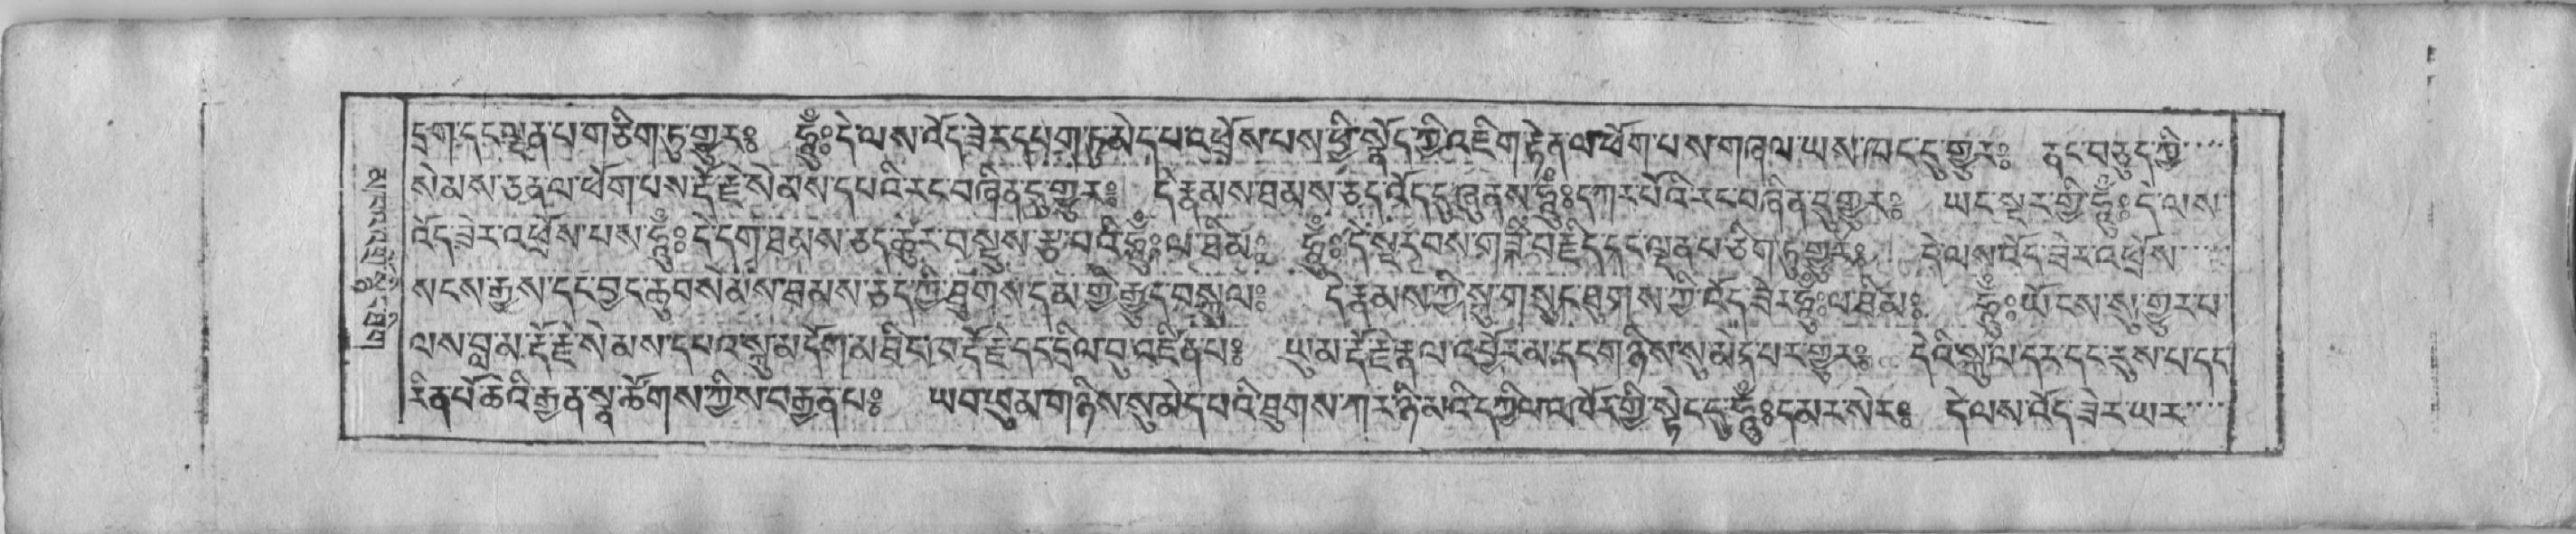 དྲག་དང་ལྡན་པ་གཅིག་ཏུ་གྱུར༔ ཧཱུྃ༔དེ་ལས་འོད་ཟེར་དཔག་ཏུ་མེད་པ་འཕྲོས་པས་ཕྱི་སྣོད་ཀྱི་འཇིག་རྟེན་ལ་ཕོག་པས་གཞལ་ཡས་ཁང་དུ་གྱུར༔ ནང་བཅུད་ཀྱི་
སེམས་ཅན་ལ་ཕོག་པས་རྡོ་རྗེ་སེམས་དཔའི་རང་བཞིན་དུ་གྱུར༔ དེ་རྣམས་ཐམས་ཅད་འོད་དུ་ཞུ་ནས་ཧཱུྃ༔དཀར་པོའི་རང་བཞིན་དུ་གྱུར༔ ཡང་སྔར་གྱི་ཧཱུྃ༔དེ་ལས་
འོད་ཟེར་འཕྲོས་པས་ཧཱུྃ༔དེ་དག་ཐམས་ཅད་ཚུར་བསྡུས་རྩ་བའི་ཧཱུྃ༔ལ་ཐིམ༔ ཧཱུྃ༔དེ་སྔར་བས་གཟི་བརྗིད་དང་ལྡན་པ་ཅིག་ཏུ་གྱུར༔ དེ་ལས་འོད་ཟེར་འཕྲོས་
སངས་རྒྱས་དང་བྱང་ཆུབ་སེམས་ཐམས་ཅད་ཀྱི་ཐུགས་དམ་གྱི་རྒྱུད་བསྐུལ༔ དེ་རྣམས་ཀྱི་སྐུ་གསུང་ཐུགས་ཀྱི་འོད་ཟེར་ཧཱུྃ༔ལ་ཐིམ༔ ཧཱུྃ༔ཡོངས་སུ་གྱུར་པ་
ལས་བླ་མ་རྡོ་རྗེ་སེམས་དཔའ་སྐུ་མདོག་མཐིང་ག་རྡོ་རྗེ་དང་དྲིལ་བུ་འཛིན་པ༔ ཡུམ་རྡོ་རྗེ་རྣལ་འབྱོར་མ་དང་གཉིས་སུ་མེད་པར་གྱུར༔ དེའི་སྐུ་ལ་དར་དང་རུས་པ་དང་
རིན་པོ་ཆེའི་རྒྱན་སྣ་ཚོགས་ཀྱིས་བརྒྱན་པ༔ ཡབ་ཡུམ་གཉིས་སུ་མེད་པའི་ཐུགས་ཀར་ཉི་མའི་དཀྱིལ་འཁོར་གྱི་སྟེང་དུ་ཧཱུྃ༔དམར་སེར༔ དེ་ལས་འོད་ཟེར་ཡར་